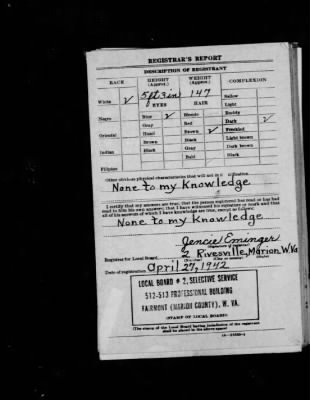 REGISTRAR'S REPORT
DESCRIPTION OF REGISTRANT
RACE HEIGHT (Approx.) WEIGHT (Approx.) COMPLEXION
5 ft 3 in 147 Sallow
White ✓ EYES HAIR Light
Negro Blue ✓ Blonde Ruddy
Gray Red Dark ✓
Oriental Hazel Brown ✓ Freckled
Brown Black Light brown
Indian Black Gray Dark brown
Bald Black
Filipino
Other obvious physical characteristics that will aid in identification
None to my Knowledge
I certify that my answers are true; that the person registered has read or has had
read to him his own answers; that I have witnessed his signature or mark and that
all of his answers of which I have knowledge are true, except as follows:
None to my Knowledge
Jencie Eminger
(Signature of registrar)
Registrar for Local Board 2 Rivesville, Marion W. Va
(Number) (City or county) (State)
Date of registration April 27, 1942
LOCAL BOARD # 2, SELECTIVE SERVICE
512-513 PROFESSIONAL BUILDING
FAIRMONT (MARION COUNTY), W. VA.
(STAMP OF LOCAL BOARD)
(The stamp of the Local Board having jurisdiction of the registrant
shall be placed in the above space)